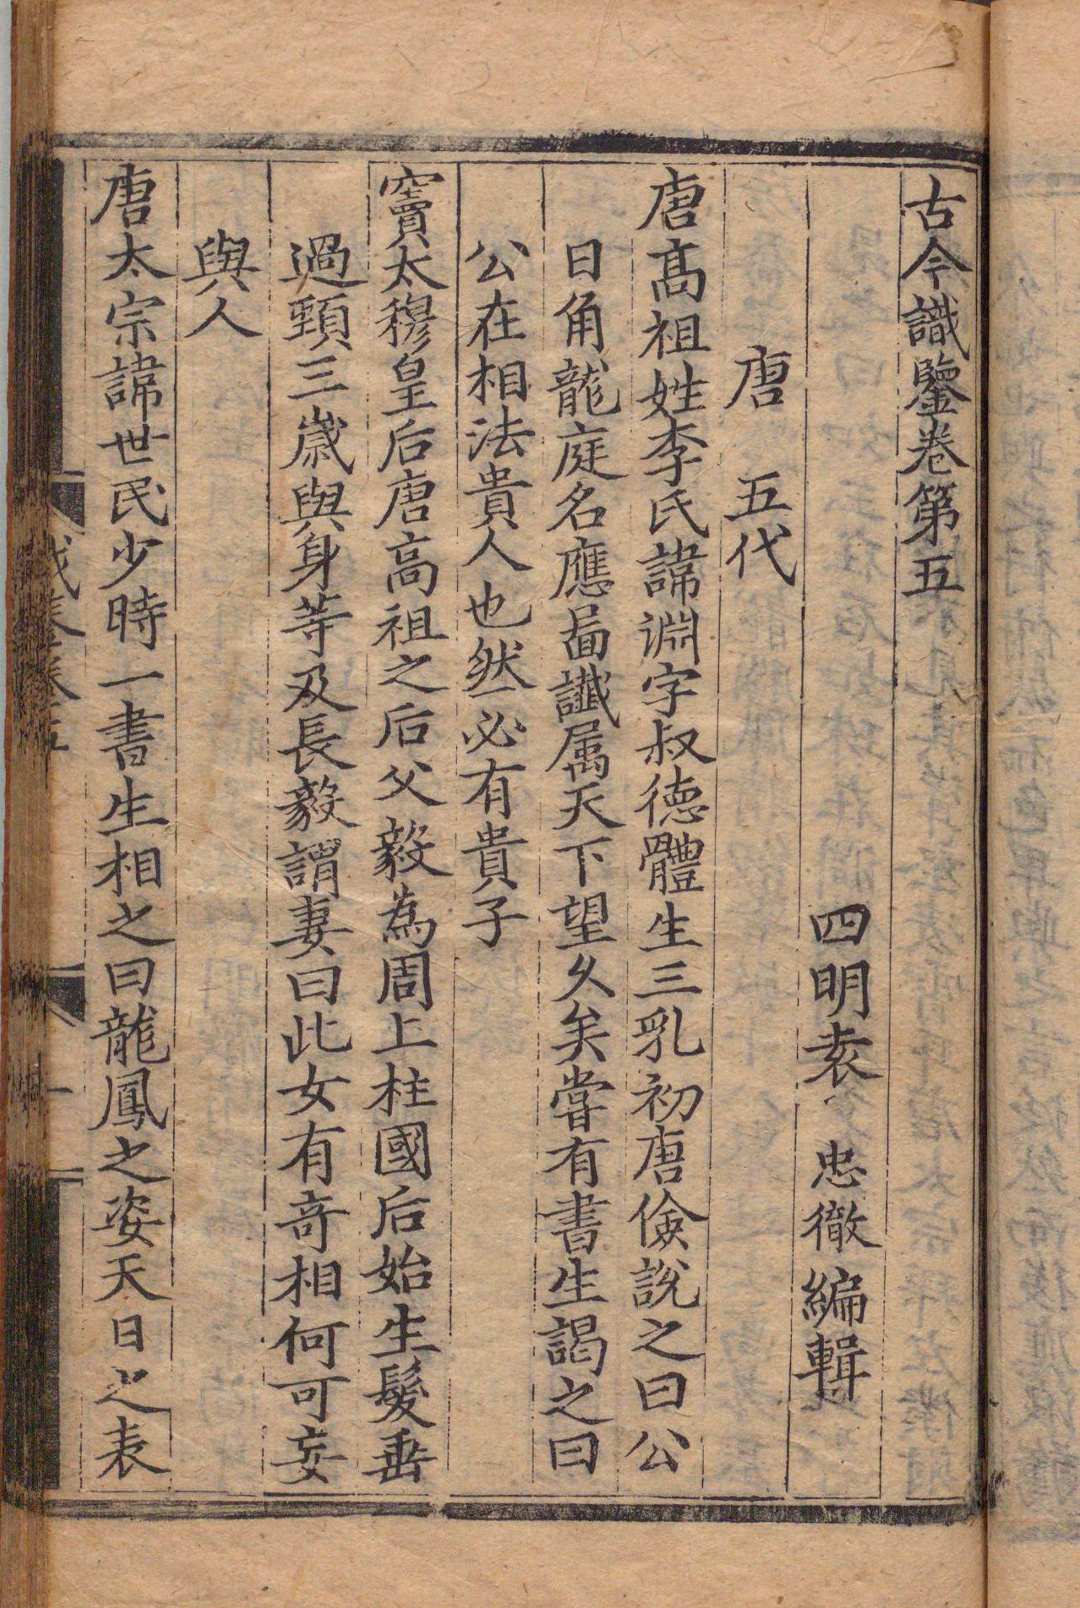 古今識鑒卷第五
四明袁忠徹編輯
唐　五代
唐髙祖姓李氏諱淵字叔德體生三乳初唐儉說之曰公
日角龍庭名應啚讖属天下望久矣嘗有書生謁之曰
公在相法貴人也然必有貴子
竇太穆皇后唐高祖之后父毅為周上柱國后始生髮垂
過頸三歲與身等及長毅謂妻曰此女有奇相何可妄
與人
唐太宗諱世民少時一書生相之曰龍鳳之姿天日之表